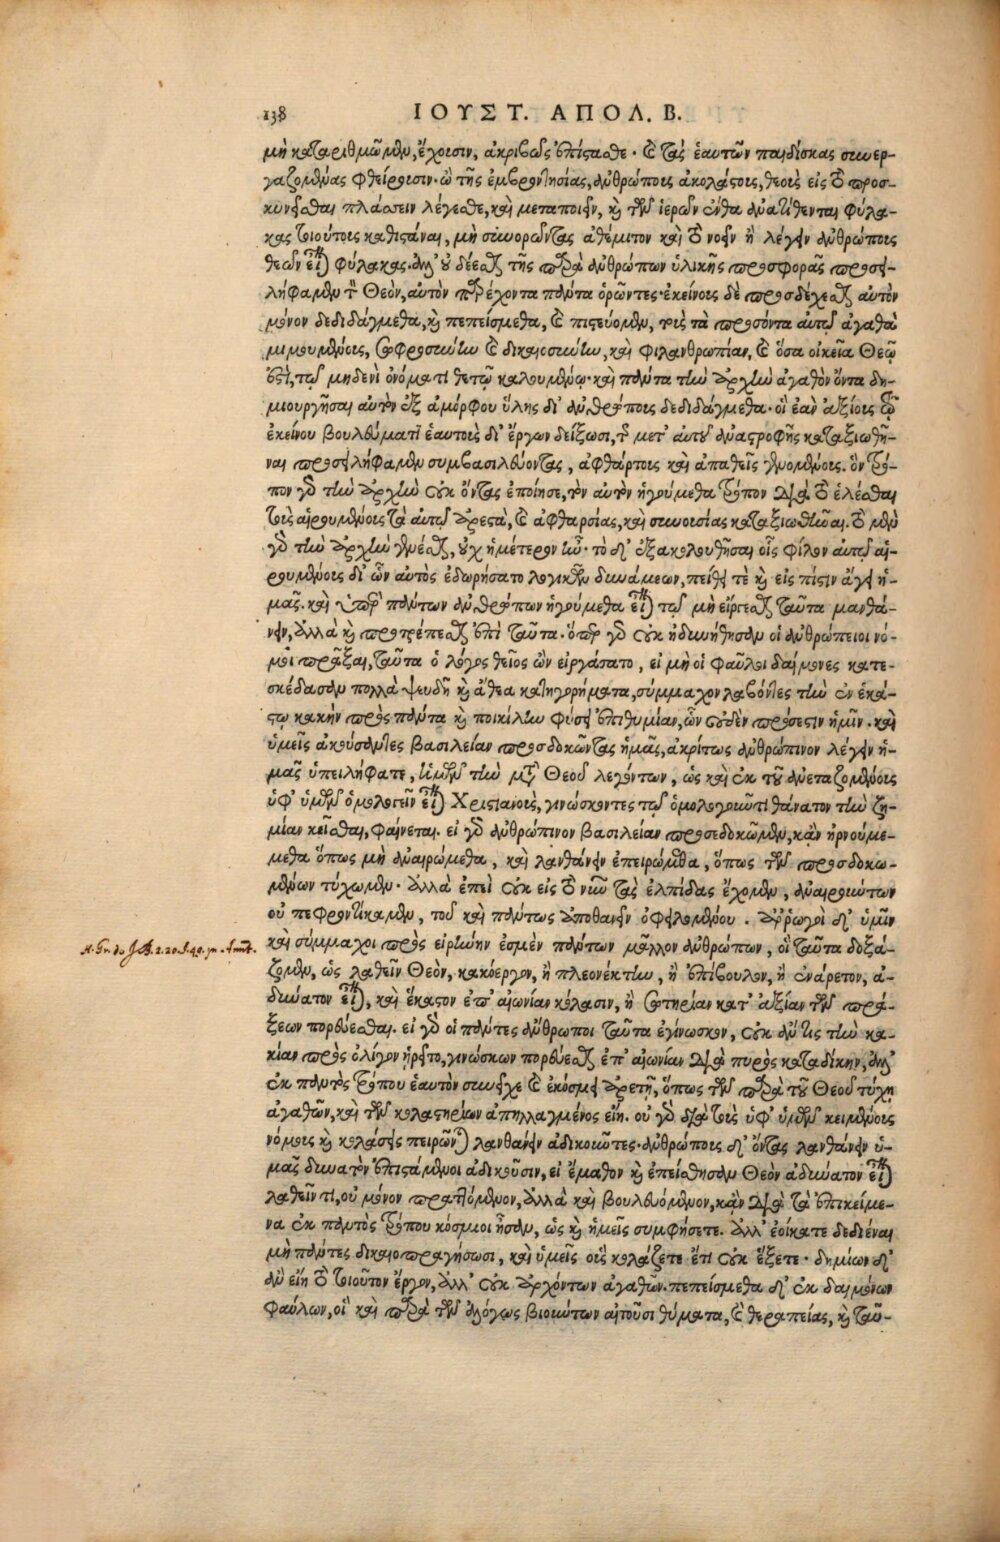 138 ΙΟΥΣΤ. ΑΠΟΛ. Β.
μὴ καταριθμῶμεν, ἔχουσιν, ἀκριβῶς ἐπίστασθε· καὶ τὰς ἑαυτῶν παιδίσκας συνερ-
γαζομένας φθείρουσιν· ὢ τῆς ἐμβροντησίας, ἀνθρώποις ἀκολάστοις, θεοὺς εἰς τὸ προσ-
κυνεῖσθαι πλάσσειν λέγεσθε, καὶ μεταποιεῖν, καὶ τῶν ἱερῶν ἔνθα ἀνατίθενται φύλα-
κας τοιούτους καθιστάναι, μὴ συνορῶντας ἀθέμιτον καὶ τὸ νοεῖν ἢ λέγειν ἀνθρώποις
θεῶν εἶναι φύλακας. ἀλλ' οὐ δέεσθαι τῆς παρὰ ἀνθρώπων ὑλικῆς προσφορᾶς προσει-
λήφαμεν τὸν Θεὸν, αὐτὸν παρέχοντα πάντα ὁρῶντες· ἐκείνους δὲ προσδέχεσθαι αὐτὸν
μόνον δεδιδάγμεθα, καὶ πεπείσμεθα, καὶ πιστεύομεν, τοὺς τὰ προσόντα αὐτῷ ἀγαθὰ
μιμουμένους, σωφροσύνην καὶ δικαιοσύνην, καὶ φιλανθρωπίαν, καὶ ὅσα οἰκεῖα Θεῷ
ἐστὶ, τῷ μηδενὶ ὀνόματι θετῷ καλουμένῳ· καὶ πάντα τὴν ἀρχὴν ἀγαθὸν ὄντα δη-
μιουργῆσαι αὐτὸν ἐξ ἀμόρφου ὕλης δι' ἀνθρώποις δεδιδάγμεθα· οἳ ἐὰν ἀξίους τῷ
ἐκείνου βουλεύματι ἑαυτοὺς δι' ἔργων δείξωσι, τῆς μετ' αὐτοῦ ἀναστροφῆς καταξιωθῆ-
ναι προσειλήφαμεν συμβασιλεύοντας, ἀφθάρτους καὶ ἀπαθεῖς γενομένους. ὃν τρό-
πον γὰρ τὴν ἀρχὴν οὐκ ὄντας ἐποίησε, τὸν αὐτὸν ἡγούμεθα τρόπον διὰ τὸ ἑλέσθαι
τοὺς αἱρουμένους τὰ αὐτῷ ἀρεστὰ, καὶ ἀφθαρσίας, καὶ συνουσίας καταξιωθῆναι. τὸ μὲν
γὰρ τὴν ἀρχὴν γενέσθαι, οὐχ ἡμέτερον ἦν· τὸ δ' ἐξακολουθῆσαι οἷς φίλον αὐτῷ αἱ-
ρουμένους δι' ὧν αὐτὸς ἐδωρήσατο λογικῶν δυνάμεων, πείθει τὲ καὶ εἰς πίστιν ἄγει ἡ-
μᾶς. καὶ ὑπὲρ πάντων ἀνθρώπων ἡγούμεθα εἶναι τῷ μὴ εἴργεσθαι ταῦτα μανθά-
νειν, ἀλλὰ καὶ προτρέπεσθαι ἐπὶ ταῦτα. ὅπερ γὰρ οὐκ ἠδυνήθησαν οἱ ἀνθρώπειοι νό-
μοι πρᾶξαι, ταῦτα ὁ λόγος θεῖος ὢν εἰργάσατο, εἰ μὴ οἱ φαῦλοι δαίμονες κατε-
σκέδασαν πολλὰ ψευδῆ καὶ ἄθεα κατηγορήματα, σύμμαχον λαβόντες τὴν ἐν ἑκά-
στῳ κακὴν πρὸς πάντα καὶ ποικίλην φύσει ἐπιθυμίαν, ὧν οὐδὲν πρόσεστιν ἡμῖν. καὶ
ὑμεῖς ἀκούσαντες βασιλείαν προσδοκῶντας ἡμᾶς, ἀκρίτως ἀνθρώπινον λέγειν ἡ-
μᾶς ὑπειλήφατε, ἡμῶν τὴν μετὰ Θεοῦ λεγόντων, ὡς καὶ ἐκ τοῦ ἀνεταζομένους
ὑφ' ὑμῶν ὁμολογεῖν εἶναι Χριστιανοὺς, γινώσκοντες τῷ ὁμολογοῦντι θάνατον τὴν ζη-
μίαν κεῖσθαι, φαίνεται. εἰ γὰρ ἀνθρώπινον βασιλείαν προσεδοκῶμεν, κἂν ἠρνούμε-
μεθα ὅπως μὴ ἀναιρώμεθα, καὶ λανθάνειν ἐπειρώμεθα, ὅπως τῶν προσδοκω-
μένων τύχωμεν· ἀλλὰ ἐπεὶ οὐκ εἰς τὸ νῦν τὰς ἐλπίδας ἔχομεν, ἀναιρούντων
οὐ πεφροντίκαμεν, τοῦ καὶ πάντως ἀποθανεῖν ὀφειλομένου. ἀρωγοὶ δ' ὑμῖν
καὶ σύμμαχοι πρὸς εἰρήνην ἐσμὲν πάντων μᾶλλον ἀνθρώπων, οἳ ταῦτα δοξά-
ζομεν, ὡς λαθεῖν Θεὸν, κακόεργον, ἢ πλεονέκτην, ἢ ἐπίβουλον, ἢ ἐνάρετον, ἀ-
δύνατον εἶναι, καὶ ἕκαστον ἐπ' αἰωνίαν κόλασιν, ἢ σωτηρίαν κατ' ἀξίαν τῶν πρά-
ξεων πορεύεσθαι. εἰ γὰρ οἱ πάντες ἄνθρωποι ταῦτα ἐγίνωσκον, οὐκ ἄν τις τὴν κα-
κίαν πρὸς ὀλίγον ᾑρεῖτο, γινώσκων πορεύεσθαι ἐπ' αἰωνίαν διὰ πυρὸς καταδίκην, ἀλλ'
ἐκ παντὸς τρόπου ἑαυτὸν συνεῖχε καὶ ἐκόσμει ἀρετῇ, ὅπως τῶν παρὰ τοῦ Θεοῦ τύχῃ
ἀγαθῶν, καὶ τῶν κολαστηρίων ἀπηλλαγμένος εἴη. οὐ γὰρ διὰ τοὺς ὑφ' ὑμῶν κειμένους
νόμους καὶ κολάσεις πειρῶνται λανθάνειν ἀδικοῦντες· ἀνθρώποις δ' ὄντας λανθάνειν ὑ-
μᾶς δυνατὸν ἐπιστάμενοι ἀδικοῦσιν, εἰ ἔμαθον καὶ ἐπείσθησαν Θεὸν ἀδύνατον εἶναι
λαθεῖν τι, οὐ μόνον πραττόμενον, ἀλλὰ καὶ βουλευόμενον, κἂν διὰ τὰ ἐπικείμε-
να ἐκ παντὸς τρόπου κόσμιοι ἦσαν, ὡς καὶ ἡμεῖς συμφήσετε. ἀλλ' ἐοίκατε δεδιέναι
μὴ πάντες δικαιοπραγήσωσι, καὶ ὑμεῖς οὓς κολάζετε ἔτι οὐκ ἕξετε· δημίων δ'
ἂν εἴη τὸ τοιοῦτον ἔργον, ἀλλ' οὐκ ἀρχόντων ἀγαθῶν. πεπείσμεθα δ' ἐκ δαιμόνων
φαύλων, οἳ καὶ παρὰ τῶν ἀλόγως βιούντων αἰτοῦσι θύματα, καὶ θεραπείας, καὶ ταῦ-